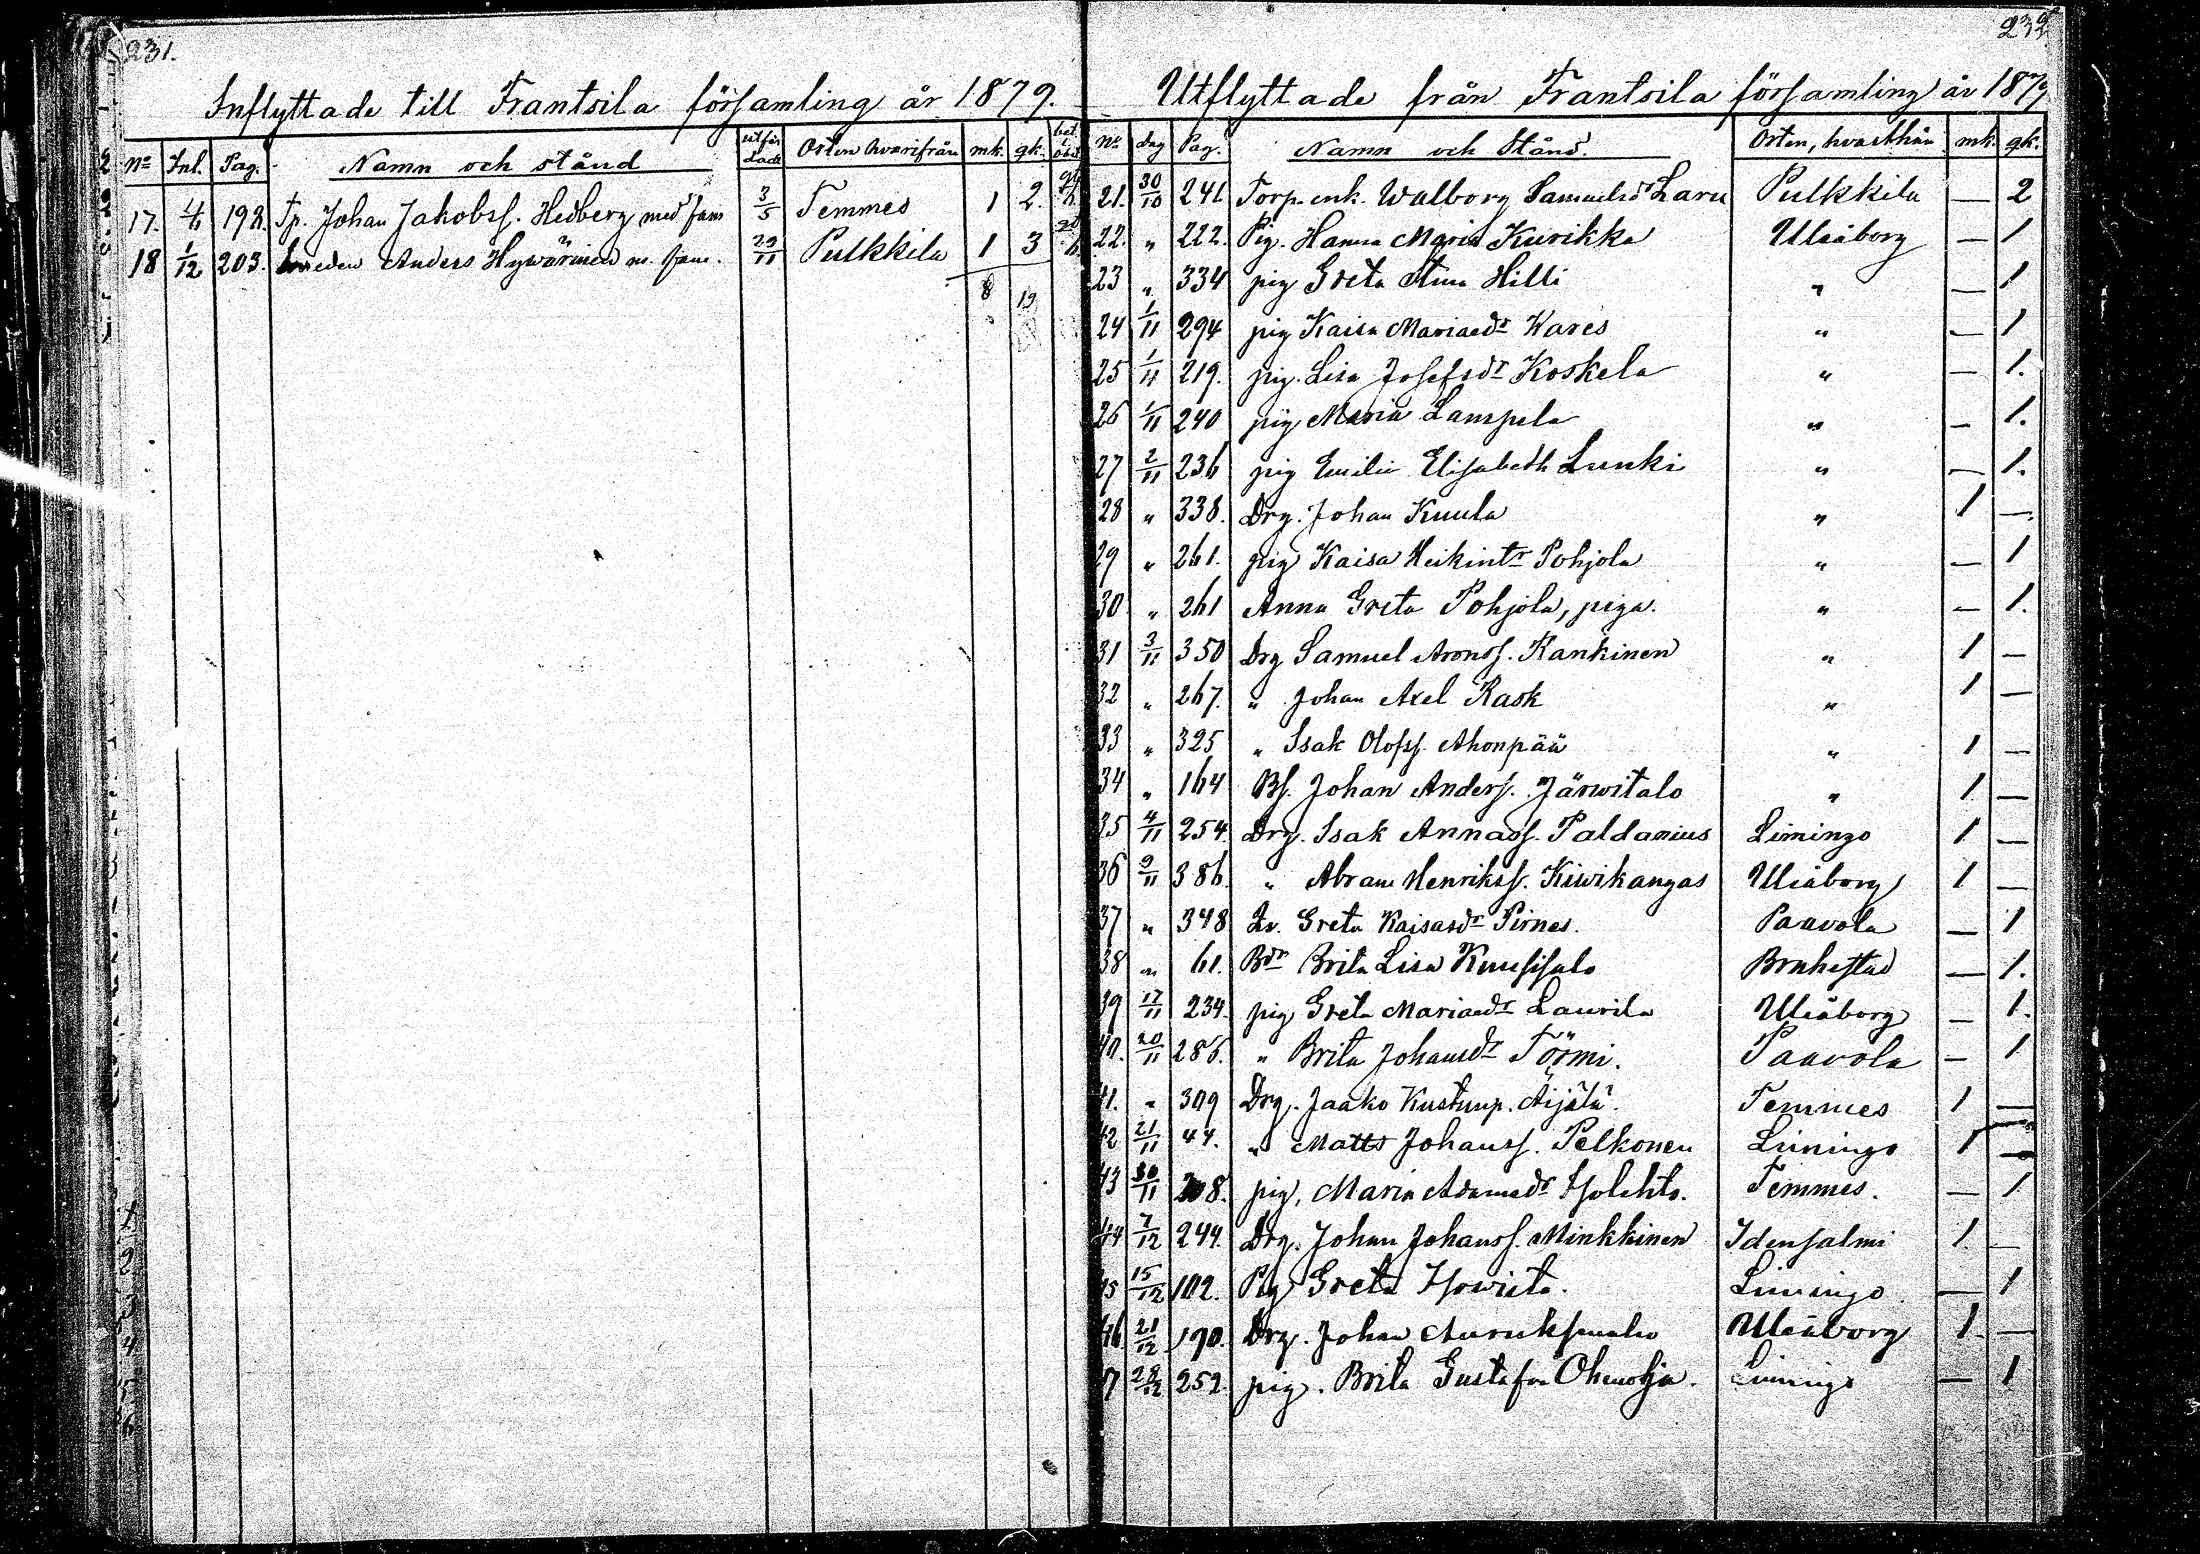 231.
Inflyttade till Frantsila församling år 1879.
No Inl. Pag. Namn och stånd utfär dade Orten hvarifrån mk. qk.
17. 198. Tp. Johan Jakobss. Hedberg med fam 3/5 Temmes 1 2.
18 1/12 203. Smeden Anders Hywärinen m. fam. 29/11 Pulkkila 1 3
8 19
232
Utflyttade från Frantsila församling år 1879
No dag Pag. Namn och Stånd. Orten, hvarthän mk. qk.
21. 30/10 241 Torp. enk. Walborg Samuelsdr Laru Pulkkila — 2
22. " 222. Pig. Hanna Maria Kurikka Uleåborg — 1
23 " 334 pig Greta Stina Hilli " — 1
24 1/11 294 pig Kaisa Mariaedr Kares " — 1
25 1/11 219. pig. Lisa Josefsdr Koskela " — 1.
26 1/11 240 pig Maria Lampela " — 1.
27 2/11 236 pig Emilie Elisabeth Lunki " — 1.
28 " 338. Drg. Johan Kuula " 1 —
29 " 261. pig Kaisa Heikintr Pohjola " — 1
30 " 261 Anna Greta Pohjola, piga. " — 1.
31 3/11 350 Drg Samuel Aronss. Kankinen " 1 —
32 " 267. " Johan Axel Rask " 1 —
33 " 325 " Isak Olofss. Ahonpää " 1 —
34 " 164 Bs. Johan Anderss. Järwitalo " 1 —
35 4/11 254. Drg. Isak Annass. Paldanius Limingo 1 —
36 9/11 386. " Abram Henrikss. Kiwikangas Uleåborg 1 —
37 " 348 Greta Kaisasdr Pirnes. Paavola — 1
38 " 61. Bdr Brita Lisa Kuusisalo Brahestad — 1.
39 17/11 234. pig Greta Mariaedr Laurila Uleåborg — 1.
40. 20/11 286. " Brita Johansdr Törmi. Paavola — 1
41. " 309 Drg. Jaako Kustunp. Äijälä. Temmes 1 —
42 21/11 44. " Matts Johanss. Pelkonen Limingo 1 —
43 30/11 208. pig, Maria Adamsdr Isolehto. Temmes. — 1
44 7/12 244. Drg. Johan Johanss. Minkkinen Idensalmi 1. —
45 15/12 102. Pig Greta Isowiita. Limingo — 1
46. 21/12 190. Drg. Johan Uleåborg 1. —
47 28/12 252. pig. Brita Gustafva Ohenoja. Limingo — 1